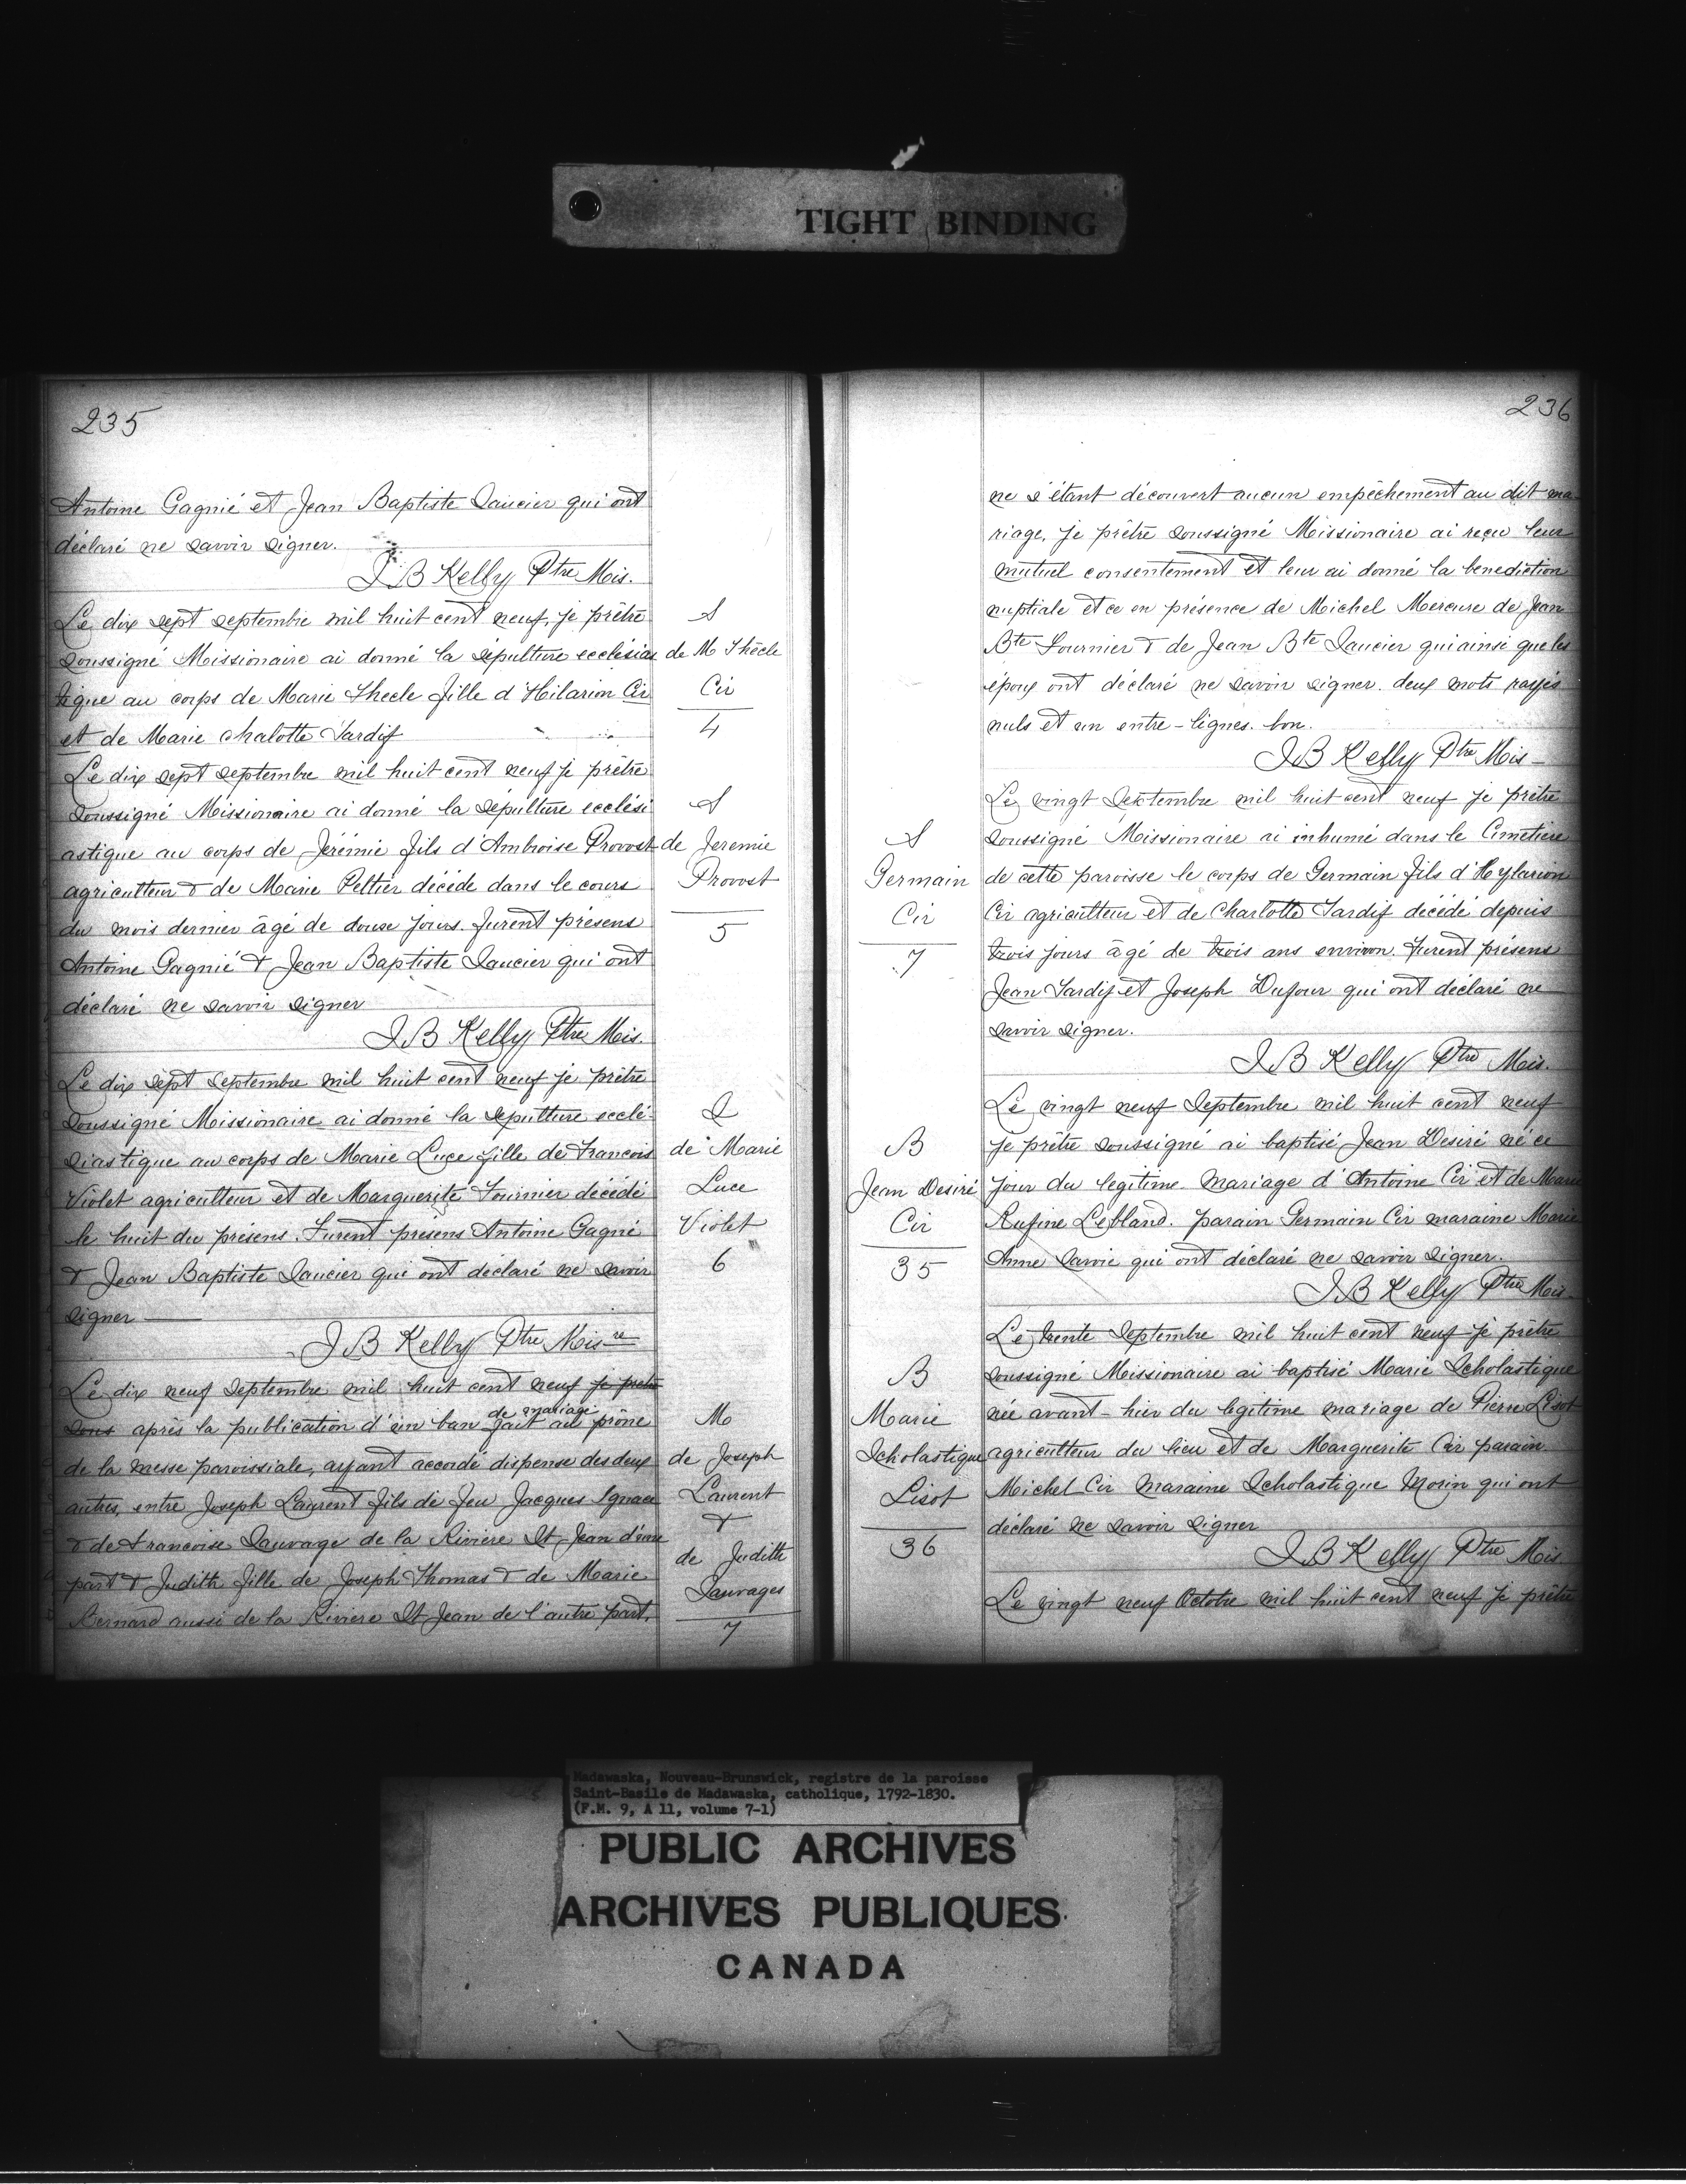 TIGHT BINDING
235
Antoine Gagnié et Jean Baptiste Saucier qui ont
déclaré ne savoir signer.
J B Kelly Ptre Mis.
Le dix sept septembre mil huit cent neuf, je prêtre
soussigné Missionaire ai donné la sépulture ecclésias
tique au corps de Marie Thecle fille d'Hilarion Cir
et de Marie chalotte Tardif
S
de M Thècle
Cir
4
Le dix sept septembre mil huit cent neuf je prêtre
soussigné Missionaire ai donné la sépulture ecclési
astique au corps de Jérémie fils d'Ambroise Provost
agriculteur & de Marie Peltier décédé dans le cours
du mois dernier âgé de douze jours. furent présens
Antoine Gagnié & Jean Baptiste Saucier qui ont
déclaré ne savoir signer
J B Kelly Ptre Mis.
S
de Jeremie
Provost
5
Le dix sept Septembre mil huit cent neuf je prêtre
soussigné Missionaire ai donné la sepulture ecclé-
siastique au corps de Marie Luce fille de Francois
Violet agriculteur et de Marguerite Fournier décédé
le huit du présens. Furent présens Antoine Gagné
& Jean Baptiste Saucier qui ont déclaré ne savoir
signer
J B Kelly Ptre Misre
S
de Marie
Luce
Violet
6
Le dix neuf Septembre mil huit cent neuf je pretre
sous après la publication d'un ban de mariage fait au prône
de la messe paroissiale, ayant accordé dispense des deux
autres, entre Joseph Laurent fils de feu Jacques Ignace
& de Francoise Sauvage de la Riviere St Jean d'une
part & Judith fille de Joseph Thomas & de Marie
Bernard aussi de la Riviere St Jean de l'autre part,
M
de Joseph
Laurent
&
de Judith
Sauvages
7
236
ne s'étant découvert aucun empêchement au dit ma
riage, je prêtre soussigné Missionaire ai reçu leur
mutuel consentement et leur ai donné la benediction
nuptiale et ce en présence de Michel Mercure de Jean
Bte Fournier & de Jean Bte Saucier qui ainsi que les
époux ont déclaré ne savoir signer. deux mots rayés
nuls et un entre-lignes. bon.
J B Kelly Ptre Mis
Le vingt Septembre mil huit cent neuf je prêtre
soussigné Missionaire ai inhumé dans le Cimetiere
de cette paroisse le corps de Germain fils d'Hylarion
Cir agriculteur et de Charlotte Tardif décédé depuis
trois jours âgé de trois ans environ. Furent présens
Jean Tardif et Joseph Dufour qui ont déclaré ne
savoir signer.
J B Kelly Ptre Mis.
S
Germain
Cir
7
Le vingt neuf Septembre mil huit cent neuf
je prêtre soussigné ai baptisé Jean Desiré né ce
jour du legitime mariage d'Antoine Cir et de Marie
Rufine Lebland. parain Germain Cir maraine Marie
Anne Savoie qui ont déclaré ne savoir signer.
J B Kelly Ptre Mis
B
Jean Desiré
Cir
35
Le trente Septembre mil huit cent neuf je prêtre
soussigné Missionaire ai baptisé Marie Scholastique
née avant-hier du legitime mariage de Pierre Lisot
agriculteur du lieu et de Marguerite Cir parain
Michel Cir Maraine Scholastique Morin qui ont
déclaré ne savoir signer
J B Kelly Ptre Mis
B
Marie
Scholastique
Lisot
36
Le vingt neuf Octobre mil huit cent neuf je prêtre
Madawaska, Nouveau-Brunswick, registre de la paroisse
Saint-Basile de Madawaska, catholique, 1792-1830.
(F.M. 9, A 11, volume 7-1)
PUBLIC ARCHIVES
ARCHIVES PUBLIQUES
CANADA